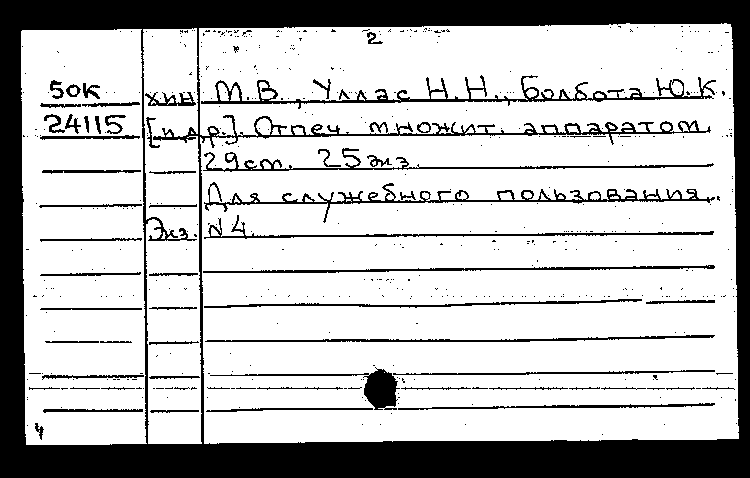 2
50К хин М.В., Уллас Н.Н., Болбота Ю.К.
24115 [и др.]. Отпеч. множит. аппаратом,
29 ст. 25 экз.
Для служебного пользования.
Экз. N 4.
4